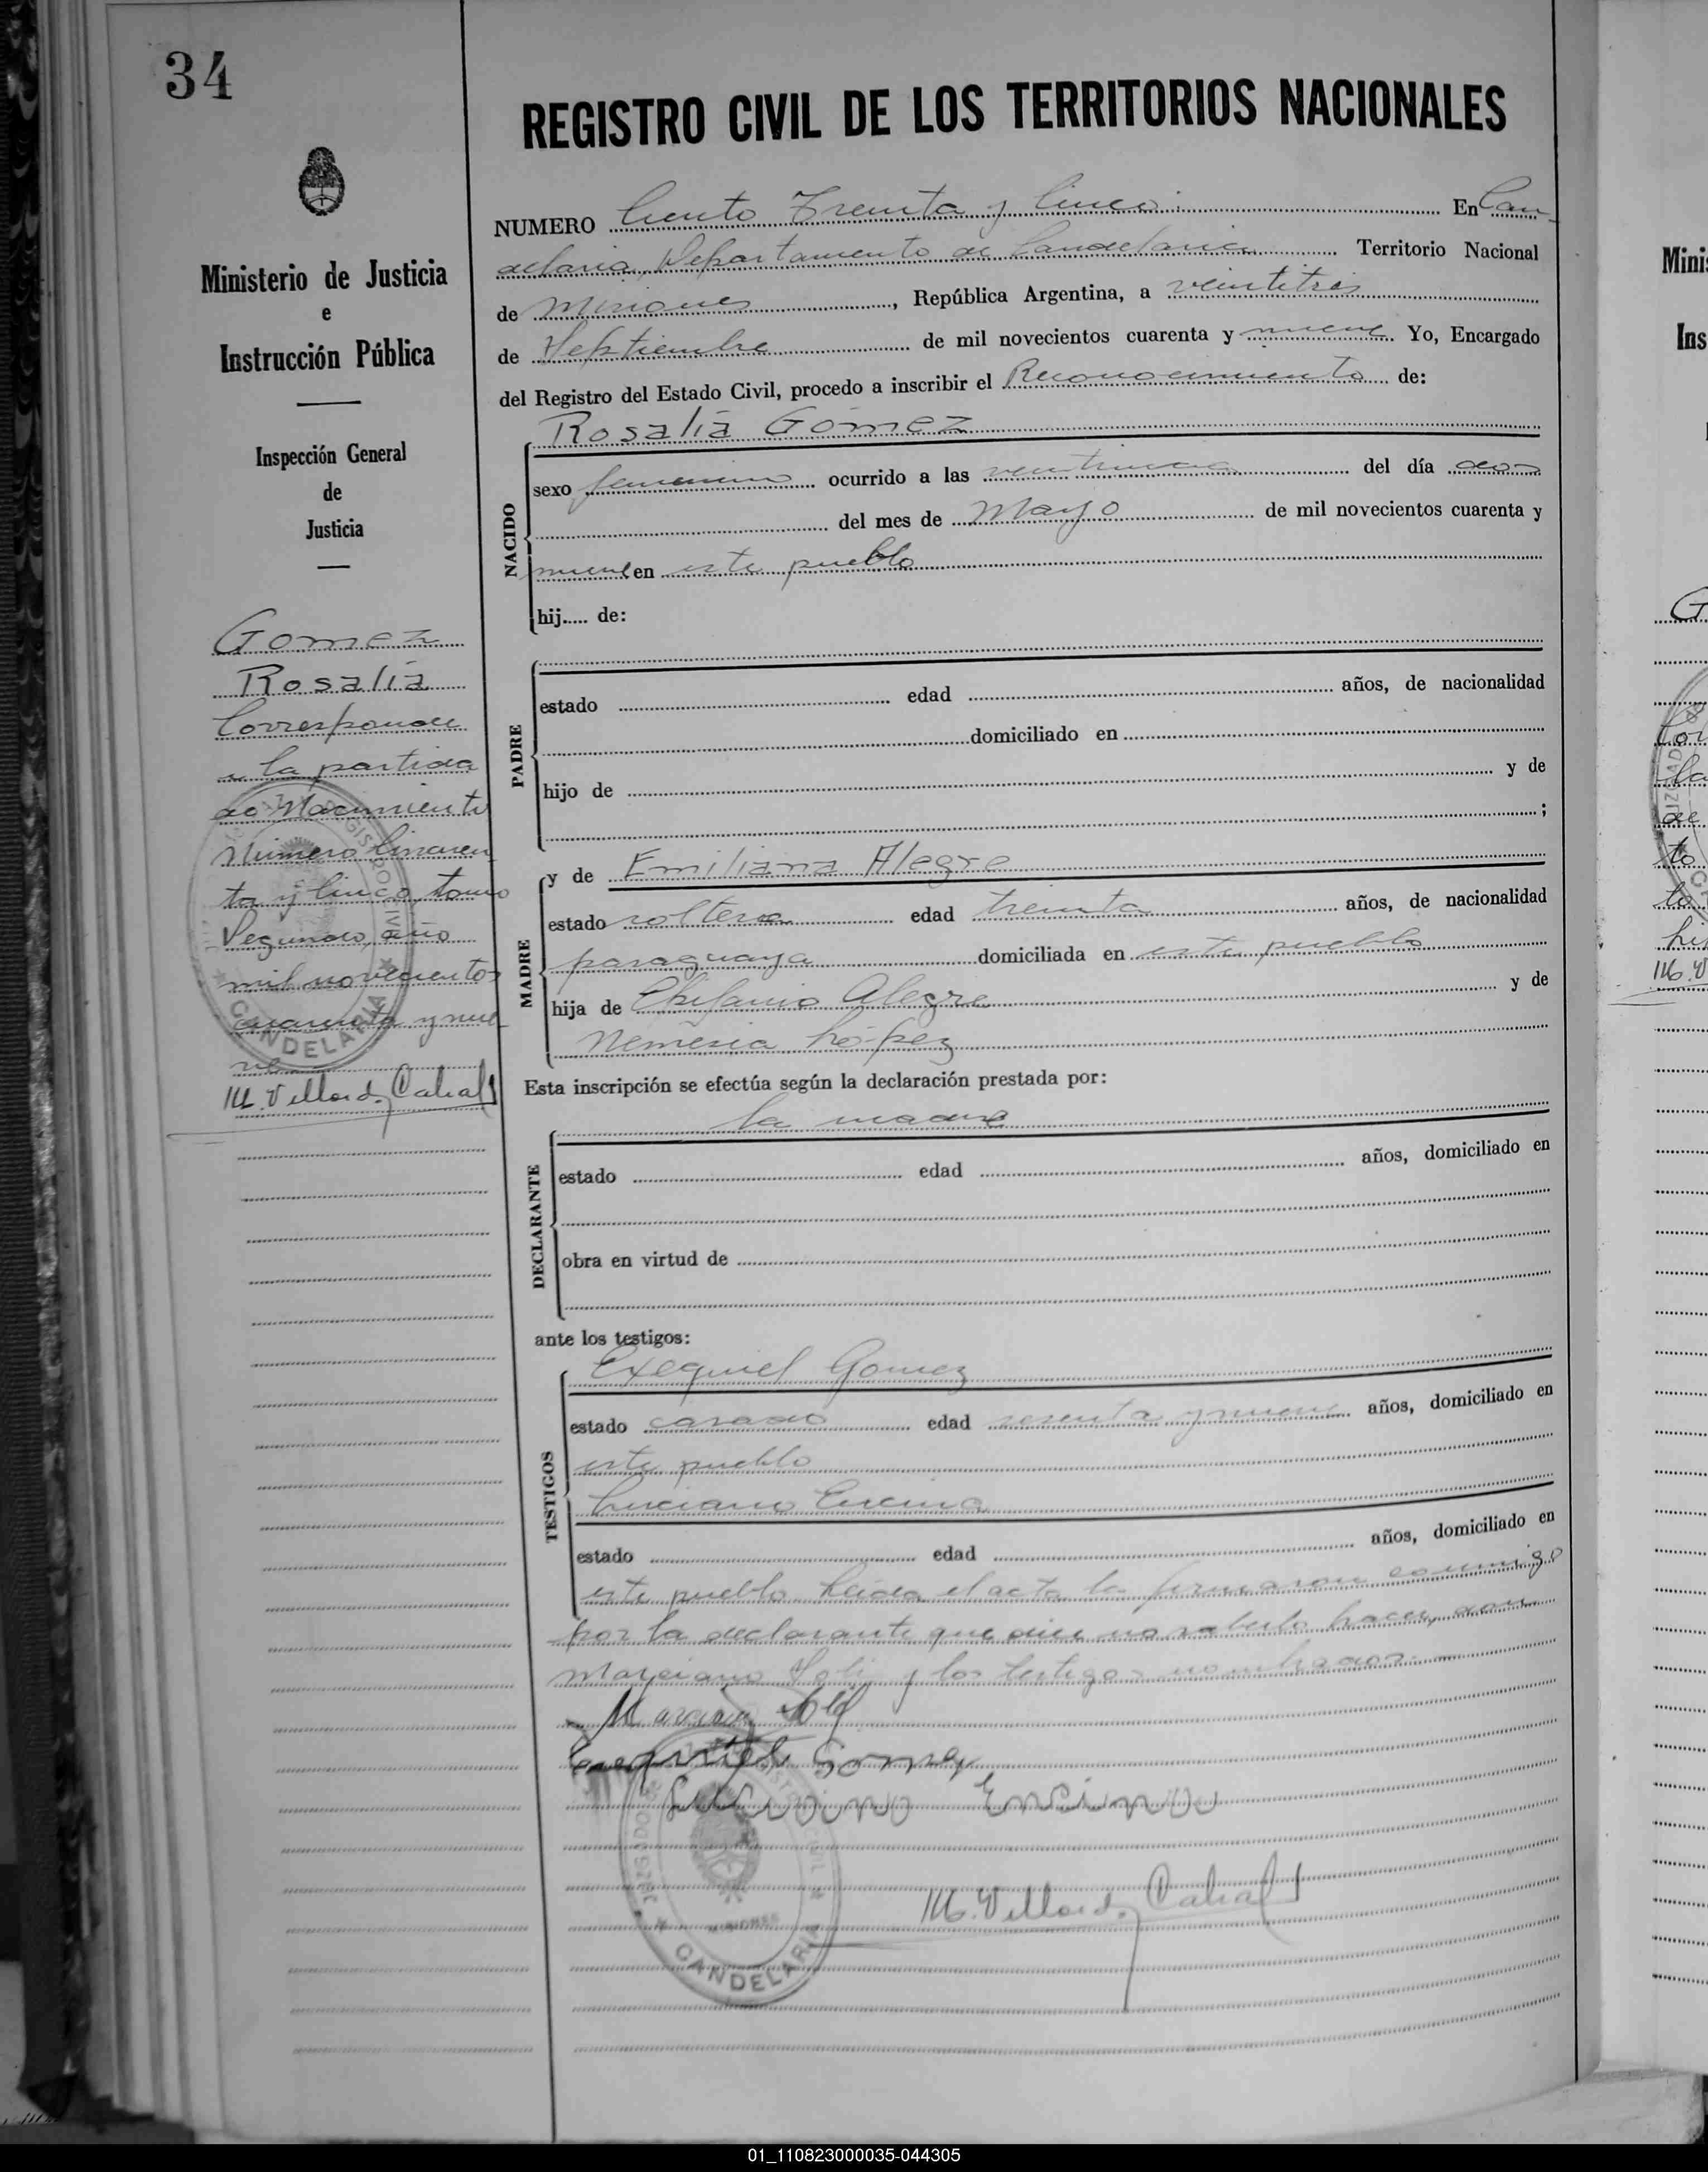 34
REGISTRO CIVIL DE LOS TERRITORIOS NACIONALES
Ministerio de Justicia
e
Instrucción Pública
Inspección General
de
Justicia
Gomez
Rosalía
Corresponde
a la partida
de Nacimiento
Número Cincuen
ta y Cinco, tomo
Segundo, año
mil novecientos
cuarenta y nue
ve
M. Villord. Cabral
CANDELARIA
NUMERO Ciento Treinta y Cinco. En Can-
delaria, Departamento de Candelaria Territorio Nacional
de Misiones, República Argentina, a veintitres
de Septiembre de mil novecientos cuarenta y nueve Yo, Encargado
del Registro del Estado Civil, procedo a inscribir el Reconocimiento de:
NACIDO
Rosalía Gómez
sexo femenino ocurrido a las del día dos
del mes de Mayo de mil novecientos cuarenta y
nueve en este pueblo
hij..... de:
PADRE
estado edad años, de nacionalidad
domiciliado en
hijo de y de
;
MADRE
y de Emiliana Alegre
estado soltera edad treinta años, de nacionalidad
paraguaya domiciliada en este pueblo
hija de Epifanio Alegre y de
Nemesia López
Esta inscripción se efectúa según la declaración prestada por:
la madre
DECLARANTE
estado edad años, domiciliado en
obra en virtud de
ante los testigos:
TESTIGOS
Exequiel Gomez
estado casado edad sesenta y nueve años, domiciliado en
este pueblo
Luciano Encina
estado edad años, domiciliado en
este pueblo. Leida el acta la firmaron conmigo
por la declarante que dice no saberlo hacer, don
Marciano Solí y los testigos nombrados.
Exequiel Gomez
Luciano Encina
M. Villord. Cabral
CANDELARIA
01_110823000035-044305